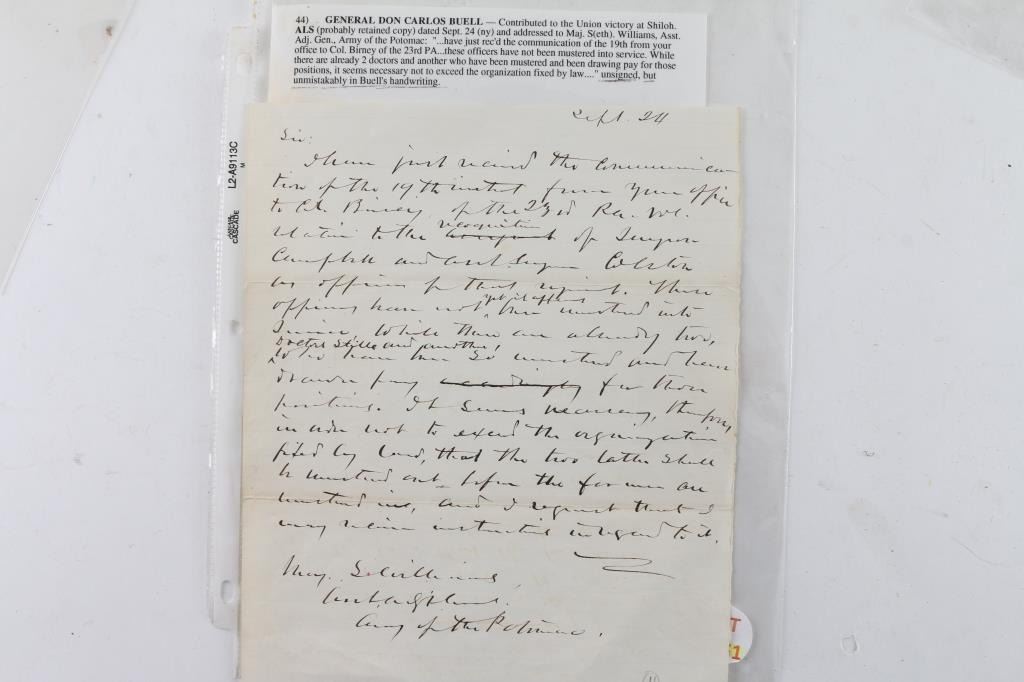 44) GENERAL DON CARLOS BUELL — Contributed to the Union victory at Shiloh.
ALS (probably retained copy) dated Sept. 24 (ny) and addressed to Maj. S(eth). Williams, Asst.
Adj. Gen., Army of the Potomac: "...have just rec'd the communication of the 19th from your
office to Col. Birney of the 23rd PA...these officers have not been mustered into service. While
there are already 2 doctors and another who have been mustered and been drawing pay for those
positions, it seems necessary not to exceed the organization fixed by law...." unsigned, but
unmistakably in Buell's handwriting.
L2-A9113C
M
CASCADE
Sept. 24
Sir:
I have just received the communica-
tion of the 19th instant from your office
to Col. Birney, of the 23rd Pa. Vol.
recognition
relative to the of Surgeon
Campbell and asst. Surgeon Colston
as officers of that regiment. These
officers have not been mustered into
service, while there are already two,
Doctor Stille and another,
who have been so mustered and have
drawn pay accordingly for those
positions. It seems necessary, therefore,
in order not to exceed the organization
fixed by law, that the two latter shall
be mustered out before the former are
mustered in, and I request that I
may receive instructions in regard to it.
Maj. S. Williams,
Asst. Adjt. Genl.
Army of the Potomac.
T
1